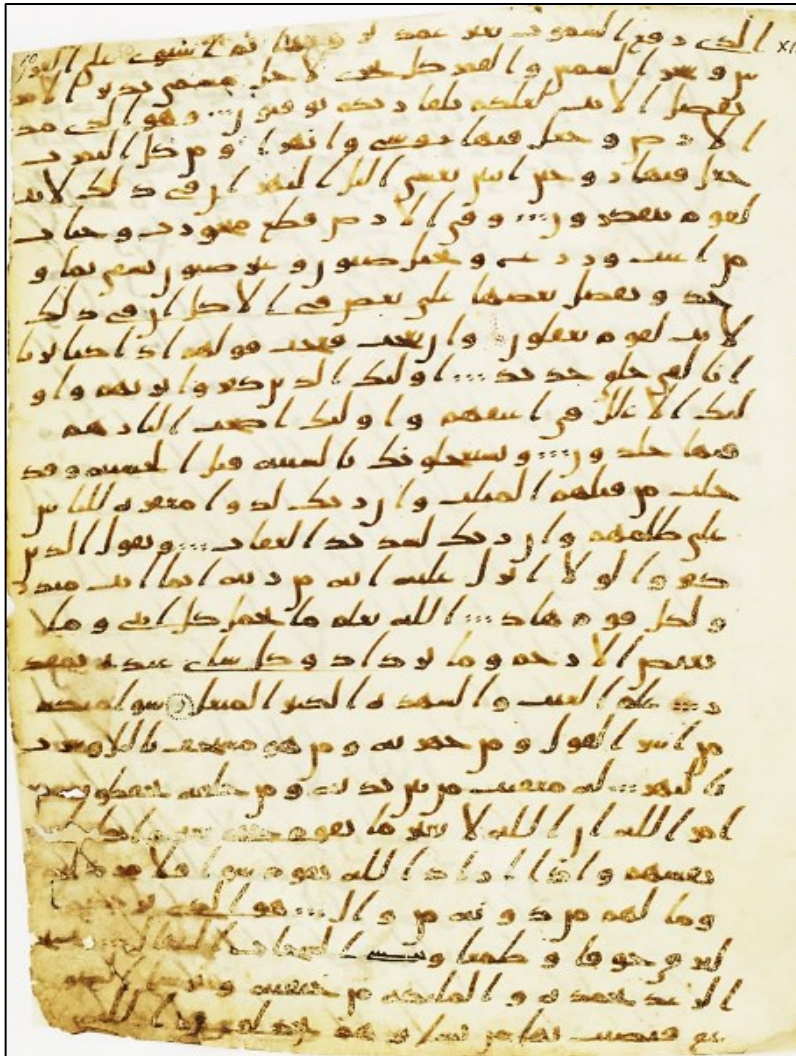 الذي رفع السموت بغير عمد ترونها ثم استوى على العر
ش وسخر الشمس والقمر كل يجري لاجل مسمى يدبر الامر
يفصل الايت لعلكم بلقا ربكم توقنون وهو الذي مد
الارض وجعل فيها روسي وانهرا ومن كل الثمرت
جعل فيها زوجين اثنين يغشي اليل النهر ان في ذلك لايت
لقوم يتفكرون وفي الارض قطع متجورت وجنات
من اعنب وزرع ونخيل صنون وغير صنون تسقى بما و
حد ونفضل بعضها على بعض في الاكل ان في ذلك
لايت لقوم يعقلون وان تعجب فعجب قولهم اذا كنا تربا
انا لفي خلق جديد اوليك الذين كفروا بربهم واو
ليك الاغلل في اعنقهم واوليك اصحب النار هم
فيها خلدون ويستعجلونك بالسييه قبل الحسنه وقد
خلت من قبلهم المثلت وان ربك لذوا مغفره للناس
على ظلمهم وان ربك لشديد العقاب ويقول الذين
كفروا لولا انزل عليه ايه من ربه انما انت منذر
ولكل قوم هاد الله يعلم ما تحمل كل انثى وما
تغيض الارحم وما تزداد وكل شاي عنده بمقد
ر علم الغيب والشهده الكبير المتعل سوا منكم
من اسر القول ومن جهر به ومن هو مستخف باليل وسرب
بالنهر له معقبت من بين يديه ومن خلفه يحفظونه من
امر الله ان الله لا يغير ما بقوم حتى يغيروا ما با
نفسهم واذا اراد الله بقوم سوا فلا مرد له
وما لهم من دونه من وال هو الذي يريكم
البرق خوفا وطمعا وينشى السحاب الثقال ويسبح
الرعد بحمده والمليكه من خيفته ويرسل الصو
عق فيصيب بها من يشا وهم يجدلون في الله